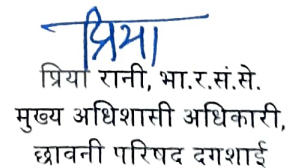 प्रिया
प्रिया रानी, भा.र.सं.से.
मुख्य अधिशासी अधिकारी,
छावनी परिषद दगशाई